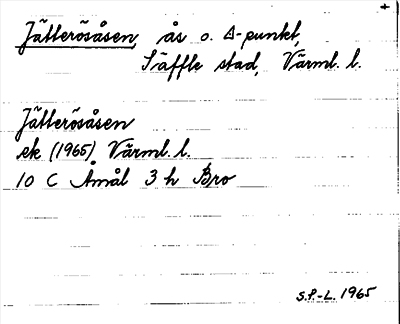 +
Jätterösåsen, ås o. Δ-punkt,
Säffle stad, Värml. l.
Jätterösåsen
ek (1965) Värml. l.
10 C Åmål 3 h Bro
S.P.-L. 1965